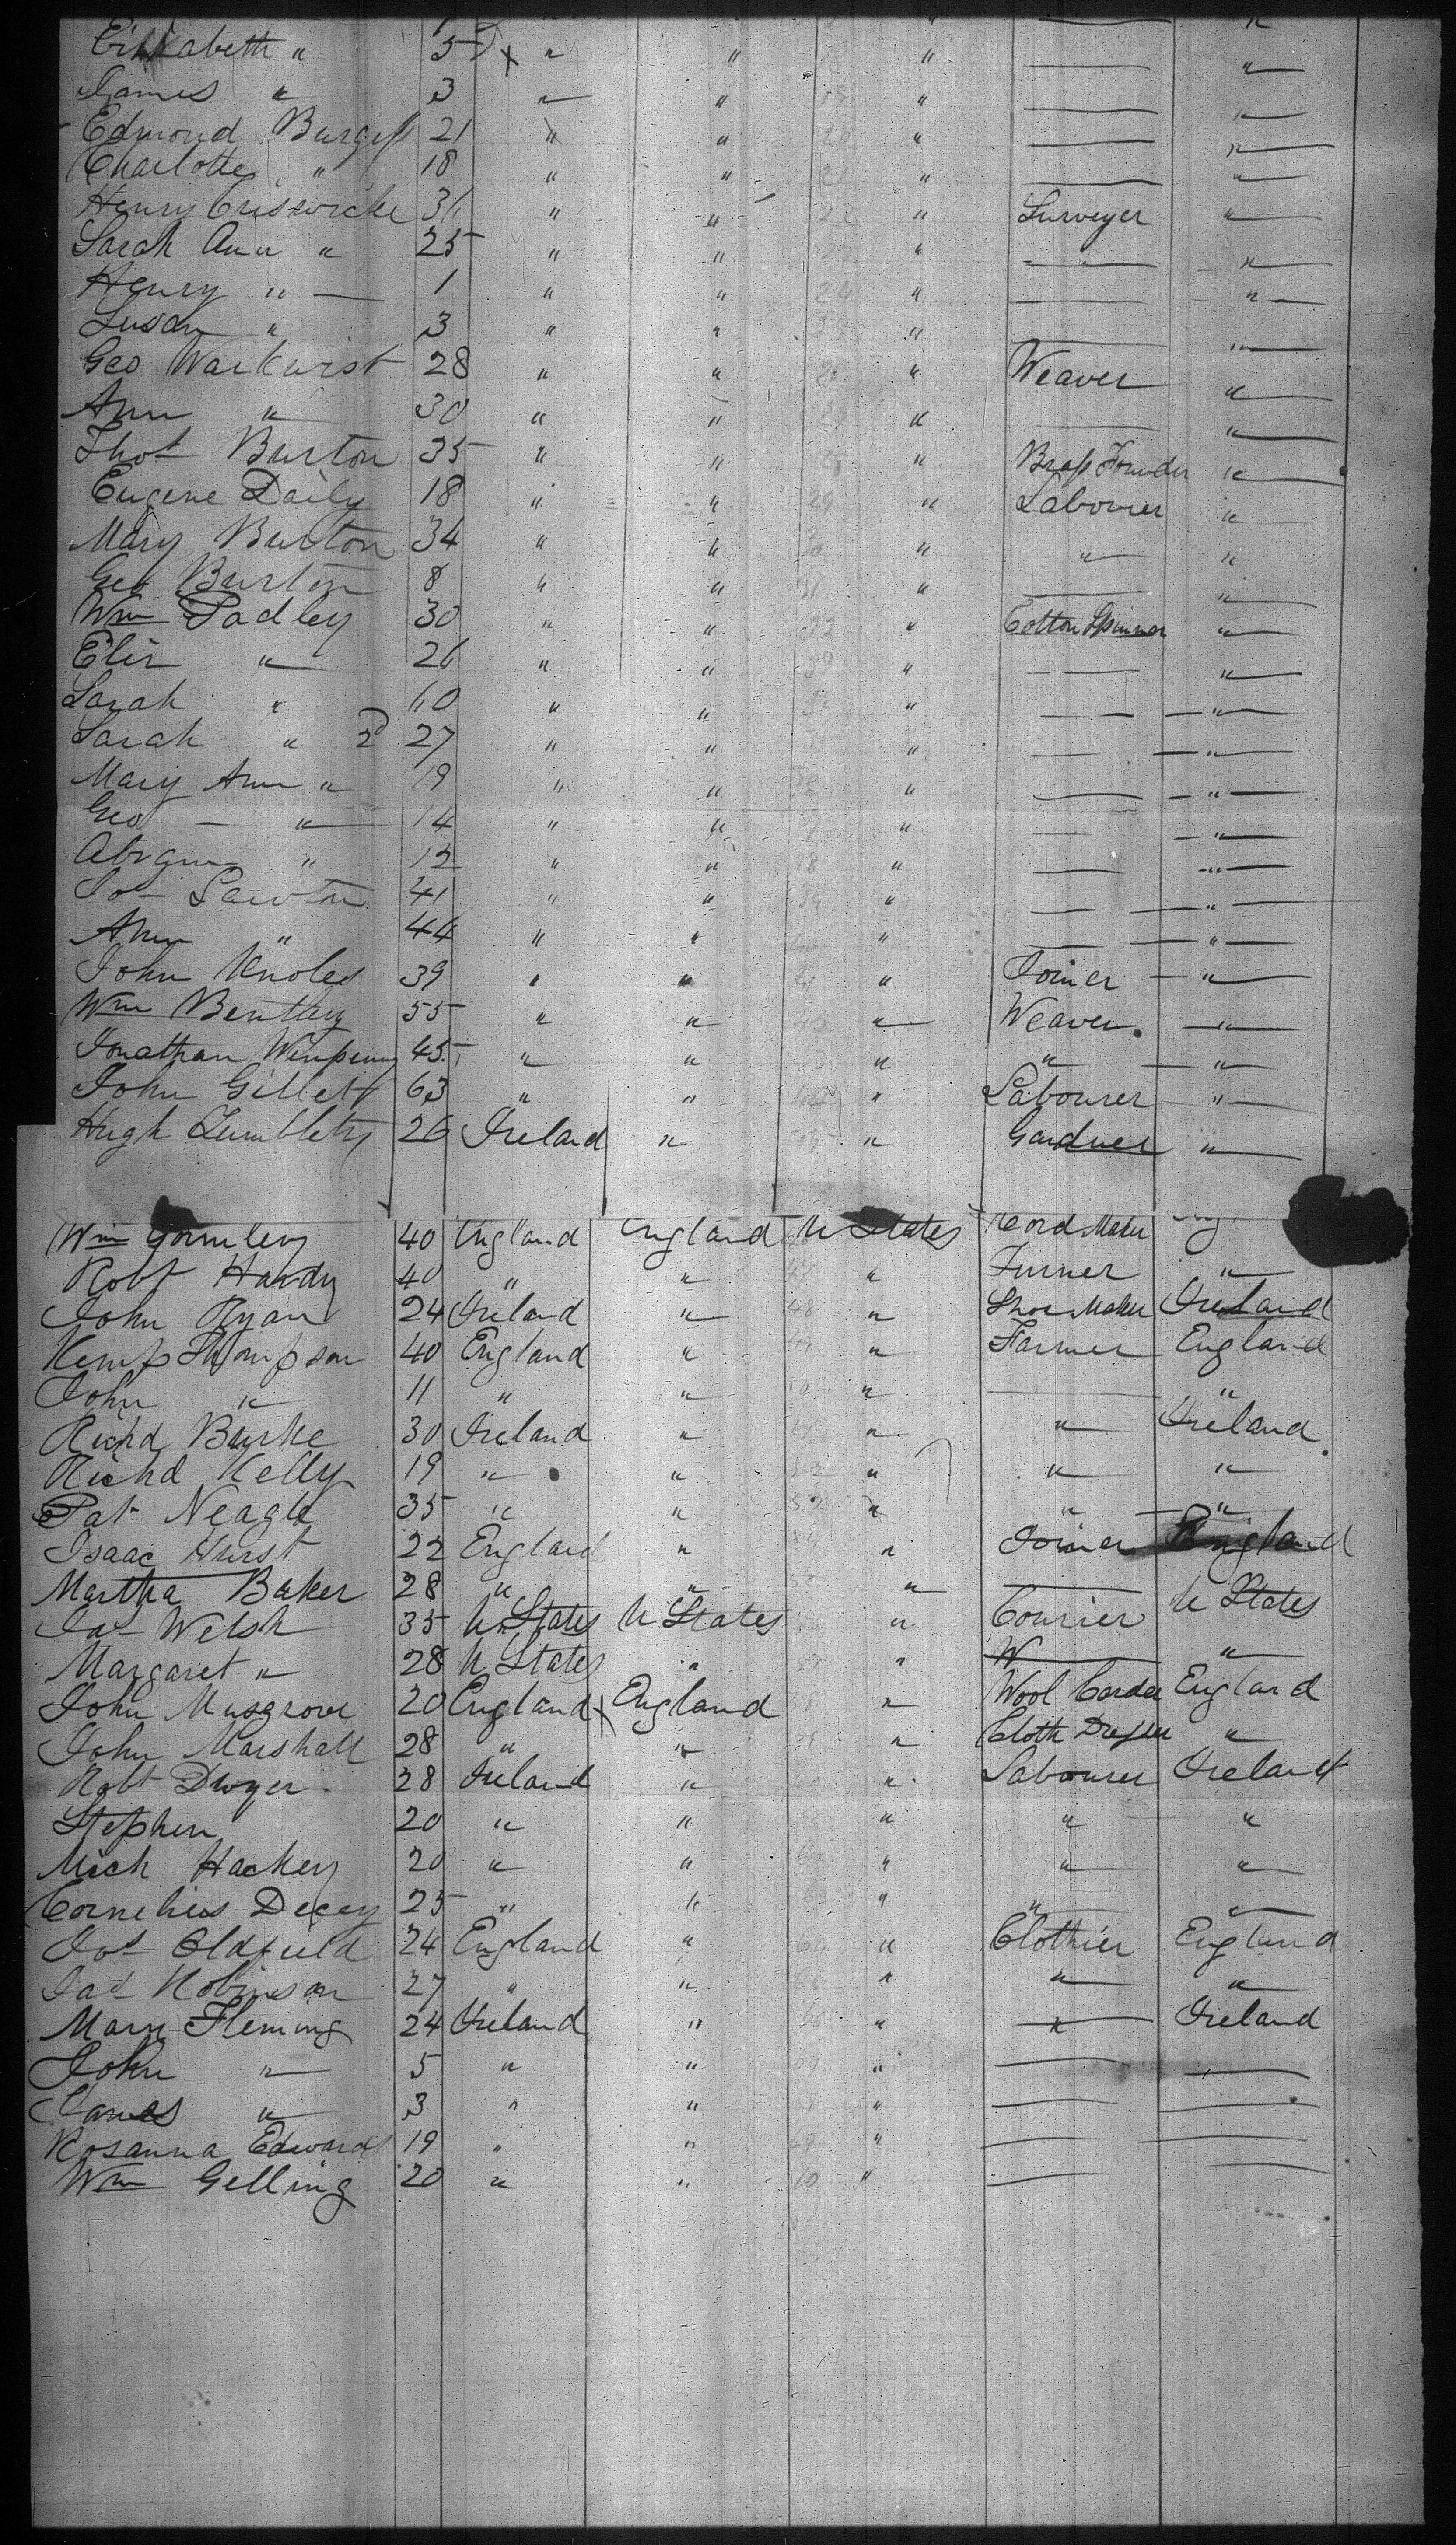 Elizabeth " 5 " " " "
James " 3 " " " "
Edmond Burgess 21 " " 20 " "
Charlotte " 18 " " 21 " "
Henry " " 22 " Surveyor "
Sarah Ann " 25 " " " "
Henry " 1 " " 24 " "
Susan " 3 " " " "
Geo 28 " " " Weaver "
Ann " 30 " " " "
Thos Burton 35 " " " Brass Founder "
Eugene Daily 18 " " 29 " Labourer "
Mary Burton 34 " " 30 " " "
Geo Burton 8 " " 31 " "
Wm Padley 30 " " 32 " Cotton Spinner "
Eliz " 26 " " " "
Sarah " 60 " " " "
Sarah " 2d 27 " " " "
Mary Ann " 19 " " " "
Geo " 14 " " " "
" 12 " " 38 " "
Jos Lawton 41 " " 39 " "
Ann " 44 " " " "
John Knoles 39 " " 41 " Joiner "
Wm Bentley 55 " " " Weaver "
Jonathan Wimpenny 45 " " " " "
John Gillett 63 " " " Labourer "
Hugh 26 Ireland " " Gardner "
Wm Gormley 40 England England U States Maker
Robt Hardy 40 " " 47 " Turner "
John Ryan 24 Ireland " 48 " Shoe Maker Ireland
Kemp Thompson 40 England " 49 " Farmer England
John " 11 " " " "
Richd Burke 30 Ireland " " " Ireland
Richd Kelly 19 " " 52 " " "
Pat Neagle 35 " " 53 " " "
Isaac Hurst 22 England " " Joiner England
Martha Baker 28 " " " U States
Jas Welsh 35 U States U States " Courier
Margaret " 28 U States " 57 " W "
John Musgrove 20 England x England " Wool Carder England
John Marshall 28 " " " Cloth Dresser "
Robt Dwyer 28 Ireland " " Labourer Ireland
Stephen 20 " " " " "
Mich Hackey 20 " " 62 " " "
Cornelius Decey 25 " " " " "
Jos Oldfield 24 England " 64 " Clothier England
Jas Robinson 27 " " " " "
Mary Fleming 24 Ireland " " " Ireland
John " 5 " " 67 "
James " 3 " " 68 "
Rosanna Edwards 19 " " 69 "
Wm Gelling 20 " " 70 "